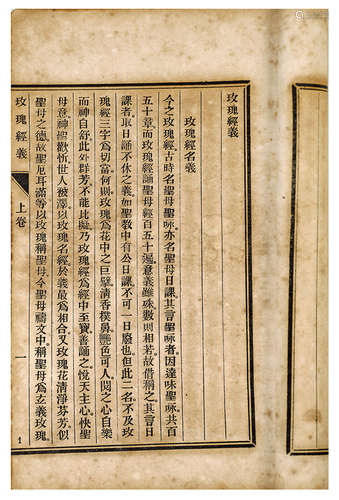 玫瑰經義
玫瑰經名義
今之玫瑰經古時名聖母聖咏亦名聖母日課其言聖咏者因達味聖咏共百
五十章而玫瑰經誦聖母經百五十遍意義雖殊數則相若故借稱之其言日
課者取日誦不休之義如聖教中有公日課不可一日廢也但此二名不及玫
瑰經三字爲切當何則玫瑰爲花中之巨擘清香撲鼻艷色可人聞之心自樂
而神自舒此外群芳不能比擬乃玫瑰經爲經中至寶善誦之悅天主心快聖
母意神聖歡忻世人被澤以玫瑰名經於義最爲相合又玫瑰花清淨芬芳似
聖母之德故聖厄耳滿等以玫瑰稱聖母今聖母禱文中稱聖母爲玄義玫瑰
玫瑰經義 上卷 一
1